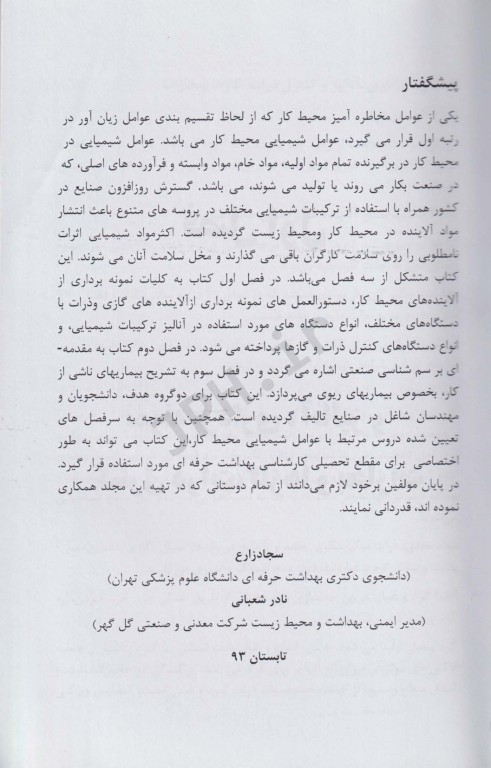 پیشگفتار
یکی از عوامل مخاطره آمیز محیط کار که از لحاظ تقسیم بندی عوامل زیان آور در
رتبه اول قرار می گیرد، عوامل شیمیایی محیط کار می باشد. عوامل شیمیایی در
محیط کار در برگیرنده تمام مواد اولیه، مواد خام، مواد وابسته و فرآورده های اصلی، که
در صنعت بکار می روند یا تولید می شوند، می باشد. گسترش روزافزون صنایع در
کشور همراه با استفاده از ترکیبات شیمیایی مختلف در پروسه های متنوع باعث انتشار
مواد آلاینده در محیط کار ومحیط زیست گردیده است. اکثرمواد شیمیایی اثرات
نامطلوبی را روی سلامت کارگران باقی می گذارند و مخل سلامت آنان می شوند. این
کتاب متشکل از سه فصل می‌باشد. در فصل اول کتاب به کلیات نمونه برداری از
آلاینده‌های محیط کار، دستورالعمل های نمونه برداری ازآلاینده های گازی وذرات با
دستگاه‌های مختلف، انواع دستگاه های مورد استفاده در آنالیز ترکیبات شیمیایی، و
انواع دستگاه‌های کنترل ذرات و گازها پرداخته می شود. در فصل دوم کتاب به مقدمه-
ای بر سم شناسی صنعتی اشاره می گردد و در فصل سوم به تشریح بیماریهای ناشی از
کار، بخصوص بیماریهای ریوی می‌پردازد. این کتاب برای دوگروه هدف، دانشجویان و
مهندسان شاغل در صنایع تالیف گردیده است. همچنین با توجه به سرفصل های
تعیین شده دروس مرتبط با عوامل شیمیایی محیط کار،این کتاب می تواند به طور
اختصاصی برای مقطع تحصیلی کارشناسی بهداشت حرفه ای مورد استفاده قرار گیرد.
در پایان مولفین برخود لازم می‌دانند از تمام دوستانی که در تهیه این مجلد همکاری
نموده اند، قدردانی نمایند.
سجادزارع
(دانشجوی دکتری بهداشت حرفه ای دانشگاه علوم پزشکی تهران)
نادر شعبانی
(مدیر ایمنی، بهداشت و محیط زیست شرکت معدنی و صنعتی گل گهر)
تابستان ۹۳
JPH.ir